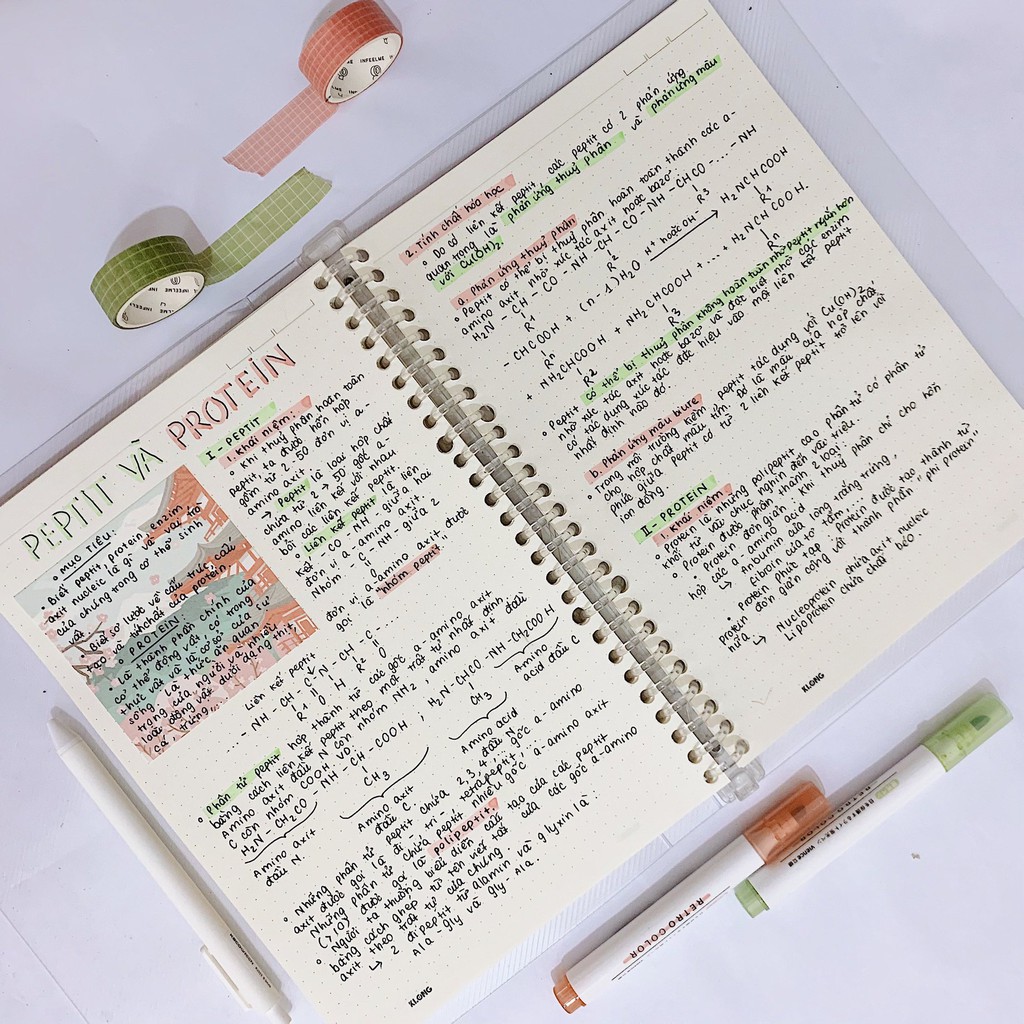 PEPTIT VÀ PROTEIN
° MỤC TIÊU:
Biết peptit, protein, enzim
axit nucleic là gì và vai trò
của chúng trong cơ thể sinh
vật
Biết sơ lược về cấu trúc cấu
tạo và tính chất của protein
PROTEIN:
° Là thành phần chính của
cơ thể động vật, có trong
thực vật và là cơ sở của sự
sống. Là thức ăn quan
trọng của người và nhiều
loài động vật dưới dạng thịt,
cá, trứng,...
I - PEPTIT
1. Khái niệm:
° Khi thuỷ phân hoàn toàn
peptit, ta được hỗn hợp
gồm từ 2 - 50 đơn vị a-
amino axit.
→ Peptit là loại hợp chất
chứa từ 2 → 50 gốc a-
amino liên kết với nhau
bởi các liên kết peptit
Liên kết peptit là liên
kết - CO - NH - giữa hai
đơn vị a-amino axit.
Nhóm - C - NH - giữa 2
O
đơn vị a-amino axit được
gọi là "nhóm peptit"
Liên kết peptit
.... - NH - CH - C - N - CH - C - ....
R1 O H R2 O
Phân tử peptit hợp thành từ các gốc a-amino axit
bằng cách liên kết peptit theo một trật tự nhất định
amino axit đầu N còn nhóm NH2, amino axit đầu
C còn nhóm COOH VD:
H2N - CH2CO - NH - CH - COOH ; H2N - CHCO - NH - CH2COOH
CH3 CH3
Amino axit
đầu N.
Amino axit
đầu C
Amino acid
đầu N
Amino
acid đầu C
° Những phân tử peptit chứa 2, 3, 4,... gốc a-amino
axit được gọi là đi, tri - tetrapeptit.
Những phân tử chứa nhiều gốc a-amino axit
(>10) được gọi là polipeptit.
° Người ta thường biểu diễn cấu tạo của các peptit
bằng cách ghép từ tên viết tắt của các gốc a-amino
axit theo trật tự của chúng
↳ 2 đipeptit từ alamin và glyxin là:
Ala - gly và gly - Ala.
KLONG
2. Tính chất hóa học
° Do có liên kết peptit các peptit có 2 phản ứng
quan trọng là phản ứng thuỷ phân và phản ứng màu
với Cu(OH)2
a. Phản ứng thuỷ phân
° Peptit có thể bị thuỷ phân hoàn toàn thành các a-
amino axit nhờ xúc tác axit hoặc bazo:
H2N - CH - CO - NH - CH - CO - NH - CHCO - .... - NH
R1 R2 R3
- CHCOOH + (n - 1)H2O H+ hoặc OH- → H2NCHCOOH
Rn R1
+ NH2CHCOOH + NH2CHCOOH + .... + H2NCHCOOH.
R2 R3 Rn
° Peptit có thể bị thuỷ phân không hoàn toàn nhờ peptit ngắn hơn
nhờ xúc tác axit hoặc bazo và đặt biệt nhờ các enzim
có tác dụng xúc tác đặc hiệu vào mỗi liên kết peptit
nhất định nào đó.
b. Phản ứng màu biure
Trong môi trường kiềm, peptit tác dụng với Cu(OH)2
cho hợp chất màu tím. Đó là màu của hợp chất
phức giữa peptit có từ 2 liên kết peptit trở lên với
ion đồng.
II - PROTEIN
1. Khái niệm
° Protein là những polipeptit cao phân tử có phân tử
khối từ vài chục nghìn đến vài triệu.
° Protein được phân thành 2 loại:
° Protein đơn giản: khi thuỷ phân chỉ cho hỗn
hợp các a-amino axit
↳ Anbumin của lòng trắng trứng,
fibroin của tơ tằm,...
Protein phức tạp: Protein được tạo thành từ
Protein đơn giản cộng với thành phần "phi protein"
nữa
↳ Nucleoprotein chứa axit nucleic
Lipoprotein chứa chất béo.
KLONG
INFEELME
INFEELME
RETRO COLOR
RETRO COLOR